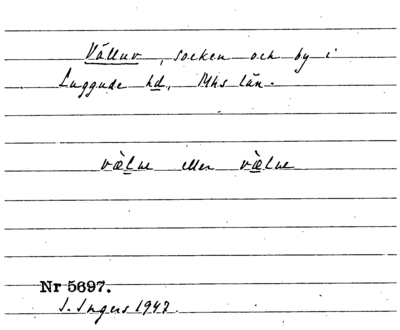 Välluv, socken och by i
Luggude hd, Mhs län.
væ̀lue eller væ̀lue
Nr 5697.
I. Ingers 1947.